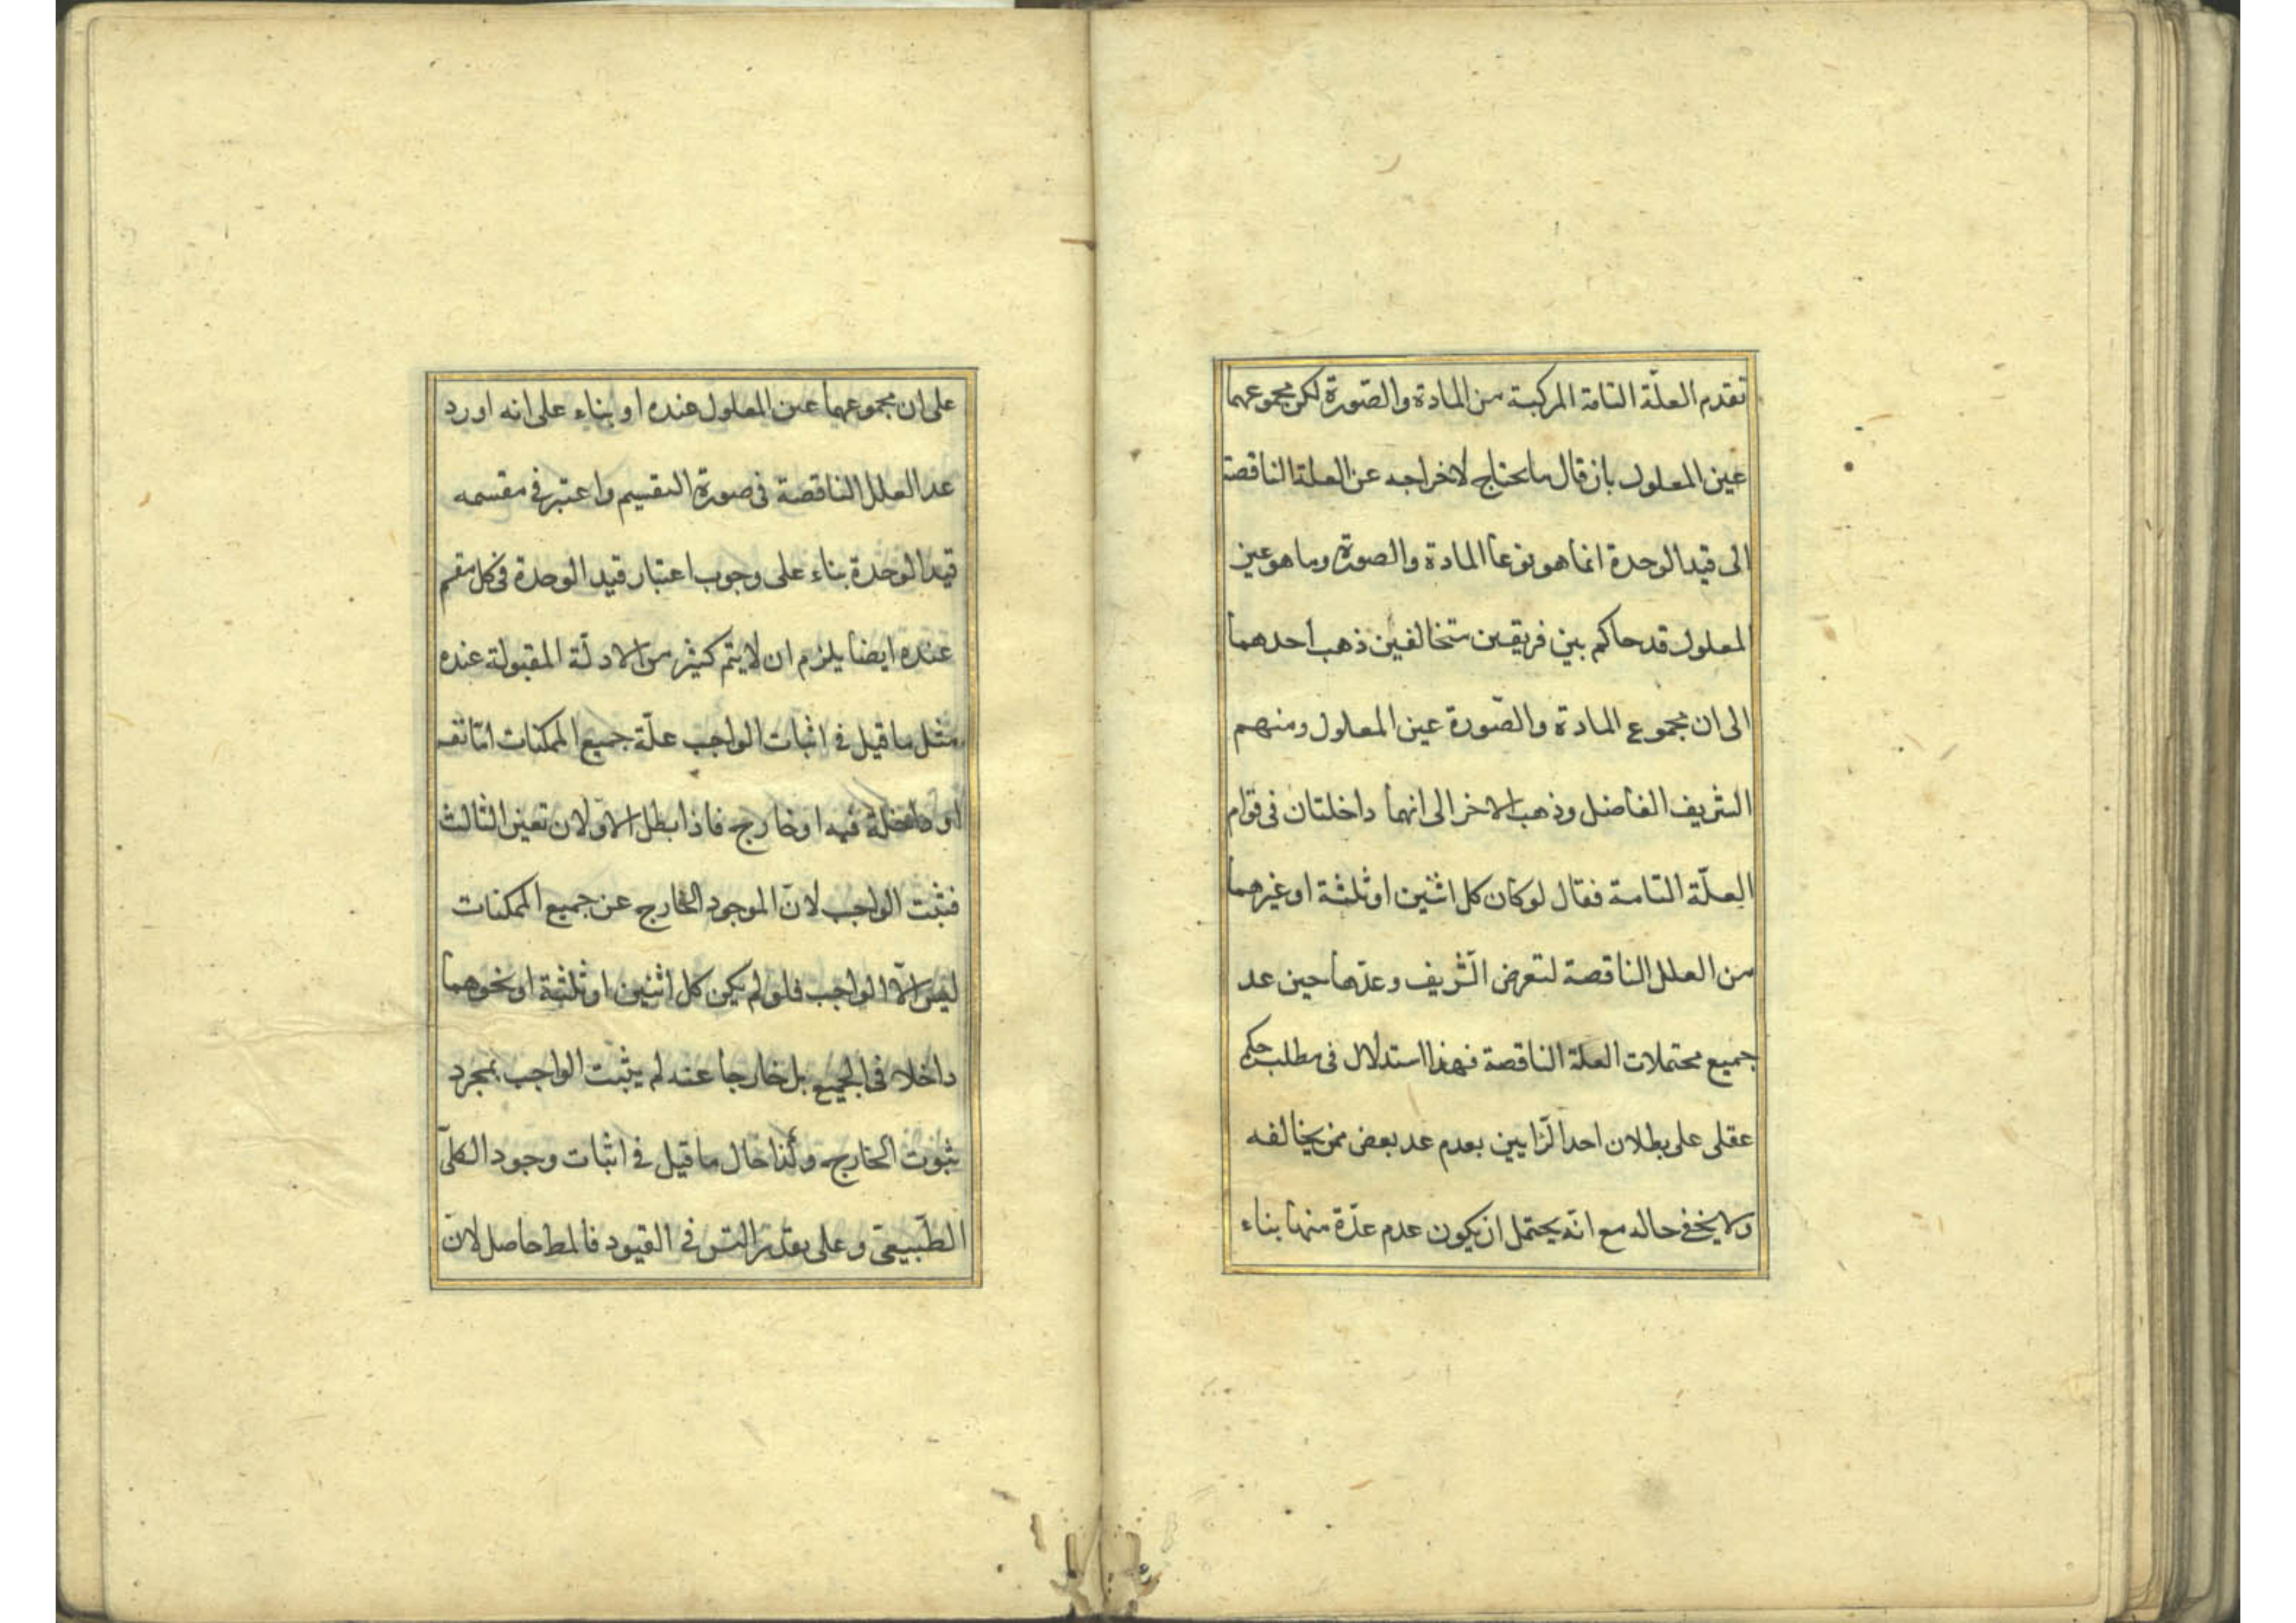 تقدم العلّة التامة المركبة من المادة والصّورة لكن مجموعهما
عين المعلول بان قال ما يحتاج لاخراجه عن العلة الناقصة
الى قيد الوحدة انما هو نوعا المادة والصورة وما هو عين
المعلول قد حاكم بين فريقين متخالفين ذهب احدهما
الى ان مجموع المادة والصّورة عين المعلول ومنهم
الشريف الفاضل وذهب الاخر الى انهما داخلتان فى قوام
العلّة التامة فقال لو كان كل اثنين او ثلثة او غيرهما
من العلل الناقصة لتعرض الشّريف وعدّها حين عد
جميع محتملات العلة الناقصة فهذا استدلال فى مطلب حكم
عقلى على بطلان احد الرّايين بعدم عد بعض ممن يخالفه
ولا يخفى حاله مع انّه يحتمل ان يكون عدم عدّه منها بناء
على ان مجموعهما عين المعلول عنده او بناء على انه اورد
عد العلل الناقصة فى صورة التقسيم واعتبر فى مقسمه
قيد الوحدة بناء على وجوب اعتبار قيد الوحدة فى كل مقسم
عنده ايضا يلزم ان لا يتم كثير من الادلّة المقبولة عنده
مثل ما قيل فى اثبات الواجب علّة جميع الممكنات امّا نفسه
او داخلة فيه او خارج فاذا بطل الاوّلان تعين الثالث
فثبت الواجب لانّ الموجود الخارج عن جميع الممكنات
ليس الاّ الواجب فلو لم يكن كل اثنين او ثلثة او نحوهما
داخلا فى الجميع بل خارجا عنه لم يثبت الواجب بمجرد
ثبوت الخارج وكذا حال ما قيل فى اثبات وجود الكلّى
الطّبيعى وعلى تقدير التس فى القيود فالمط حاصل لانّ